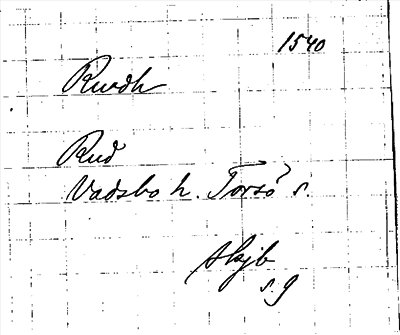 1540
Rwdh
Rud
Vadsbo h. Torsö s.
Skjb
s. 9